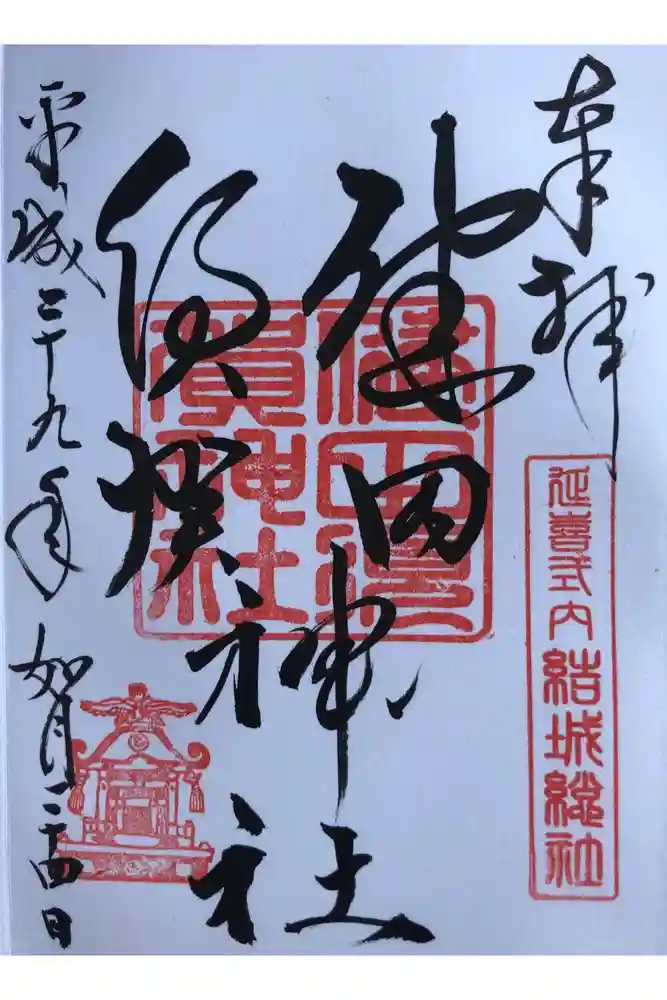 奉拝
延喜式内結城総社
健田
須賀
神社
健田須
賀神社
平成二十九年 如月二十四日